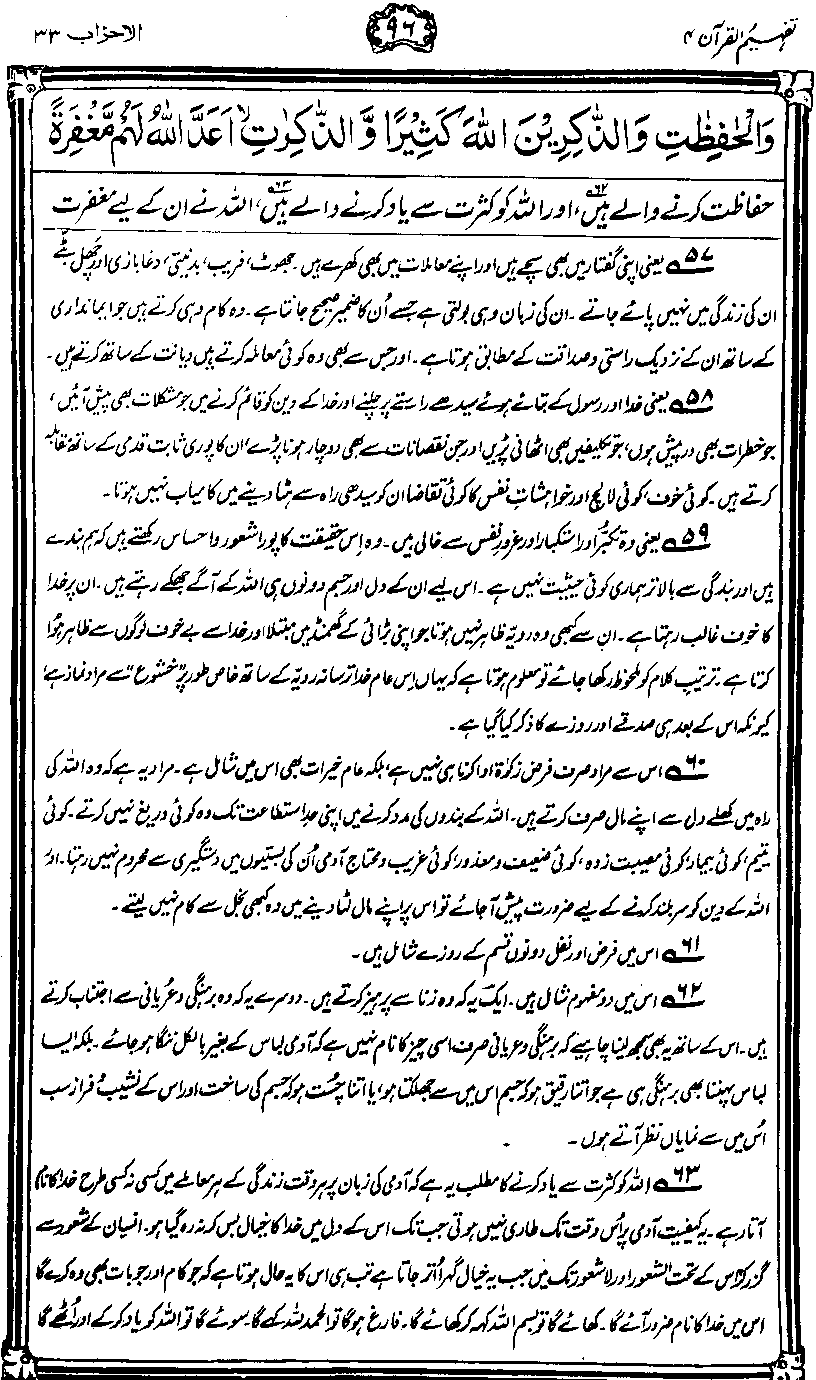 تفہیم القرآن ۴
۹۶
الاحزاب ۳۳
وَالْحٰفِظٰتِ وَالذّٰكِرِيْنَ اللّٰهَ كَثِيْرًا وَّالذّٰكِرٰتِ ۙ اَعَدَّ اللّٰهُ لَهُمْ مَّغْفِرَةً
حفاظت کرنے والے ہیں۶۲، اور اللہ کو کثرت سے یاد کرنے والے ہیں۶۳، اللہ نے ان کے لیے مغفرت
۵۷ یعنی اپنی گفتار میں بھی سچے ہیں اور اپنے معاملات میں بھی کھرے ہیں۔ جھوٹ، فریب، بدنیتی، دغا بازی اور چھل بٹے
ان کی زندگی میں نہیں پائے جاتے۔ ان کی زبان وہی بولتی ہے جسے اُن کا ضمیر صحیح جانتا ہے۔ وہ کام وہی کرتے ہیں جو ایمانداری
کے ساتھ ان کے نزدیک راستی و صداقت کے مطابق ہوتا ہے۔ اور جس سے بھی وہ کوئی معاملہ کرتے ہیں دیانت کے ساتھ کرتے ہیں۔
۵۸ یعنی خدا اور رسول کے بتائے ہوئے سیدھے راستے پر چلنے اور خدا کے دین کو قائم کرنے میں جو مشکلات بھی پیش آئیں،
جو خطرات بھی درپیش ہوں، جو تکلیفیں بھی اٹھانی پڑیں اور جن نقصانات سے بھی دوچار ہونا پڑے، ان کا پوری ثابت قدمی کے ساتھ مقابلہ
کرتے ہیں۔ کوئی خوف، کوئی لالچ اور خواہشاتِ نفس کا کوئی تقاضا ان کو سیدھی راہ سے ہٹا دینے میں کامیاب نہیں ہوتا۔
۵۹ یعنی وہ تکبر اور استکبار اور غرورِ نفس سے خالی ہیں۔ وہ اِس حقیقت کا پورا شعور و احساس رکھتے ہیں کہ ہم بندے
ہیں اور بندگی سے بالاتر ہماری کوئی حیثیت نہیں ہے۔ اس لیے ان کے دل اور جسم دونوں ہی اللہ کے آگے جھکے رہتے ہیں۔ ان پر خدا
کا خوف غالب رہتا ہے۔ ان سے کبھی وہ رویّہ ظاہر نہیں ہوتا جو اپنی بڑائی کے گھمنڈ میں مبتلا اور خدا سے بے خوف لوگوں سے ظاہر ہوا
کرتا ہے۔ ترتیبِ کلام کو ملحوظ رکھا جائے تو معلوم ہوتا ہے کہ یہاں اِس عام خدا ترسانہ رویّہ کے ساتھ خاص طور پر "خشوع" سے مراد نماز ہے،
کیونکہ اس کے بعد ہی صدقے اور روزے کا ذکر کیا گیا ہے۔
۶۰ اس سے مراد صرف فرض زکوٰۃ ادا کرنا ہی نہیں ہے، بلکہ عام خیرات بھی اس میں شامل ہے۔ مراد یہ ہے کہ وہ اللہ کی
راہ میں کھلے دل سے اپنے مال صرف کرتے ہیں۔ اللہ کے بندوں کی مدد کرنے میں اپنی حدِ استطاعت تک وہ کوئی دریغ نہیں کرتے۔ کوئی
یتیم، کوئی بیمار، کوئی مصیبت زدہ، کوئی ضعیف و معذور، کوئی غریب و محتاج آدمی اُن کی بستیوں میں دستگیری سے محروم نہیں رہتا۔ اور
اللہ کے دین کو سربلند کرنے کے لیے ضرورت پیش آجائے تو اس پر اپنے مال لٹا دینے میں وہ کبھی بخل سے کام نہیں لیتے۔
۶۱ اس میں فرض اور نفل دونوں قسم کے روزے شامل ہیں۔
۶۲ اس میں دو مفہوم شامل ہیں۔ ایک یہ کہ وہ زنا سے پرہیز کرتے ہیں۔ دوسرے یہ کہ وہ برہنگی و عُریانی سے اجتناب کرتے
ہیں۔ اس کے ساتھ یہ بھی سمجھ لینا چاہیے کہ برہنگی و عریانی صرف اسی چیز کا نام نہیں ہے کہ آدمی لباس کے بغیر بالکل ننگا ہو جائے۔ بلکہ ایسا
لباس پہننا بھی برہنگی ہی ہے جو اتنا رقیق ہو کہ جسم اس میں سے جھلکتا ہو، یا اتنا چست ہو کہ جسم کی ساخت اور اس کے نشیب و فراز سب
اُس میں سے نمایاں نظر آتے ہوں۔
۶۳ اللہ کو کثرت سے یاد کرنے کا مطلب یہ ہے کہ آدمی کی زبان پر ہر وقت زندگی کے ہر معاملے میں کسی نہ کسی طرح خدا کا نام
آتا رہے۔ یہ کیفیت آدمی پر اُس وقت تک طاری نہیں ہوتی جب تک اس کے دل میں خدا کا خیال بس کر نہ رہ گیا ہو۔ انسان کے شعور سے
گزر کر اس کے تحت الشعور اور لاشعور تک میں جب یہ خیال گہرا اُتر جاتا ہے تب ہی اس کا یہ حال ہوتا ہے کہ جو کام اور جو بات بھی وہ کرے گا
اس میں خدا کا نام ضرور آئے گا۔ کھائے گا تو بسم اللہ کہہ کر کھائے گا۔ فارغ ہوگا تو الحمد للہ کہے گا۔ سوئے گا تو اللہ کو یاد کر کے اور اُٹھے گا